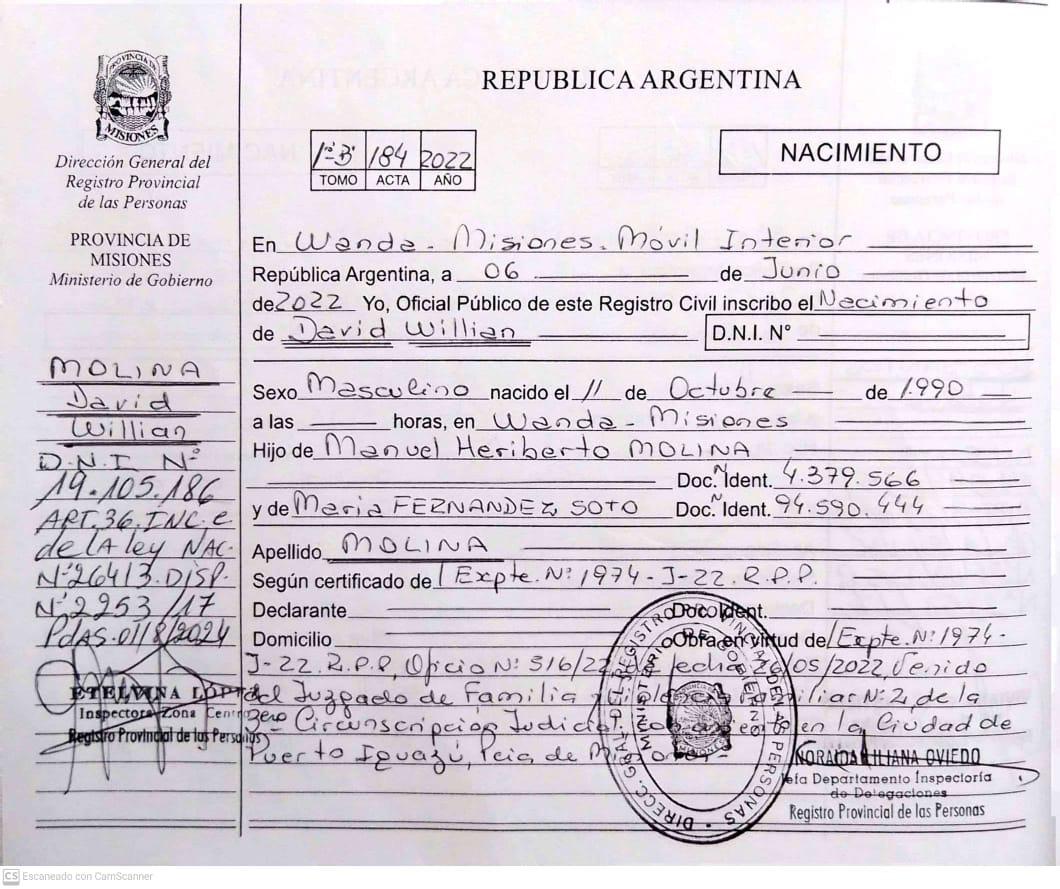 REPUBLICA ARGENTINA
PROVINCIA DE
MISIONES
Dirección General del
Registro Provincial
de las Personas
PROVINCIA DE
MISIONES
Ministerio de Gobierno
1º"B" 184 2022
TOMO ACTA AÑO
NACIMIENTO
En Wanda - Misiones. Móvil Interior
República Argentina, a 06 de Junio
de 2022 Yo, Oficial Público de este Registro Civil inscribo el Nacimiento
de David Willian D.N.I. N°
MOLINA
David
Willian
D.N.I Nº
19.105.186
ART.36.INC.e
de la ley NAC.
Nº26413.DISP.
Nº2253/17
PdAS.01/8/2024
ETELVINA
Inspectora Zona Centro
Registro Provincial de las Personas
Sexo Masculino nacido el 11 de Octubre de 1.990
a las horas, en Wanda - Misiones
Hijo de Manuel Heriberto MOLINA
Doc. N Ident. 4.379.566
y de Maria FERNANDEZ SOTO Doc. N Ident. 94.590.444
Apellido MOLINA
Según certificado de Expte. Nº 1974-J-22.R.P.P.
Declarante Doc. Ident.
Domicilio Obra en virtud de Expte. Nº 1974-
J-22.R.P.P, Oficio Nº 516/22 de fecha /05/2022, Venido
del Juzgado de Familia y Violencia Familiar Nº 2, de la
3era Circunscripción Judicial en la Ciudad de
Puerto Iguazú, Pcia. de Misiones.-
DIRECC. GRAL. DEL REGISTRO PROVINCIAL DE LAS PERSONAS
MINISTERIO DE GOBIERNO
NORAIDA LILIANA OVIEDO
Jefa Departamento Inspectoría
de Delegaciones
Registro Provincial de las Personas
CS Escaneado con CamScanner